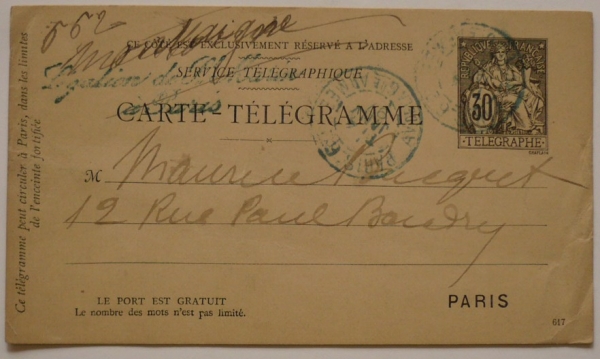 552
CE CÔTÉ EST EXCLUSIVEMENT RÉSERVÉ A L'ADRESSE
SERVICE TÉLÉGRAPHIQUE
CARTE-TÉLÉGRAMME
RÉPUBLIQUE FRANÇAISE
30
TÉLÉGRAPHE
PARIS
M Maurice
12 Rue Paul Baudry
Ce télégramme peut circuler à Paris, dans les limites
de l'enceinte fortifiée
LE PORT EST GRATUIT
Le nombre des mots n'est pas limité.
PARIS
617